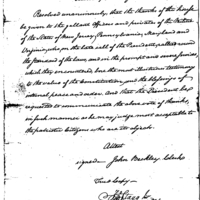 Resolved unanimously, that the thanks of this house
be given to the gallant Officers and privates of the Militia
of the State of New Jersey Pennsylvania, Maryland and
Virginia, who, on the late call of the President, rallied round
the standard of the laws, and in the prompt and severe services
which they encountered, bore the most illustrious testimony
to the value of the constitution, and the blessings of
internal peace and order. And that the President be
requested to communicate the above vote of thanks,
in such manner as he may judge most acceptable to
the patriotic Citizens who are its objects.
Attest
signed John Beckley Clerk
True Copy